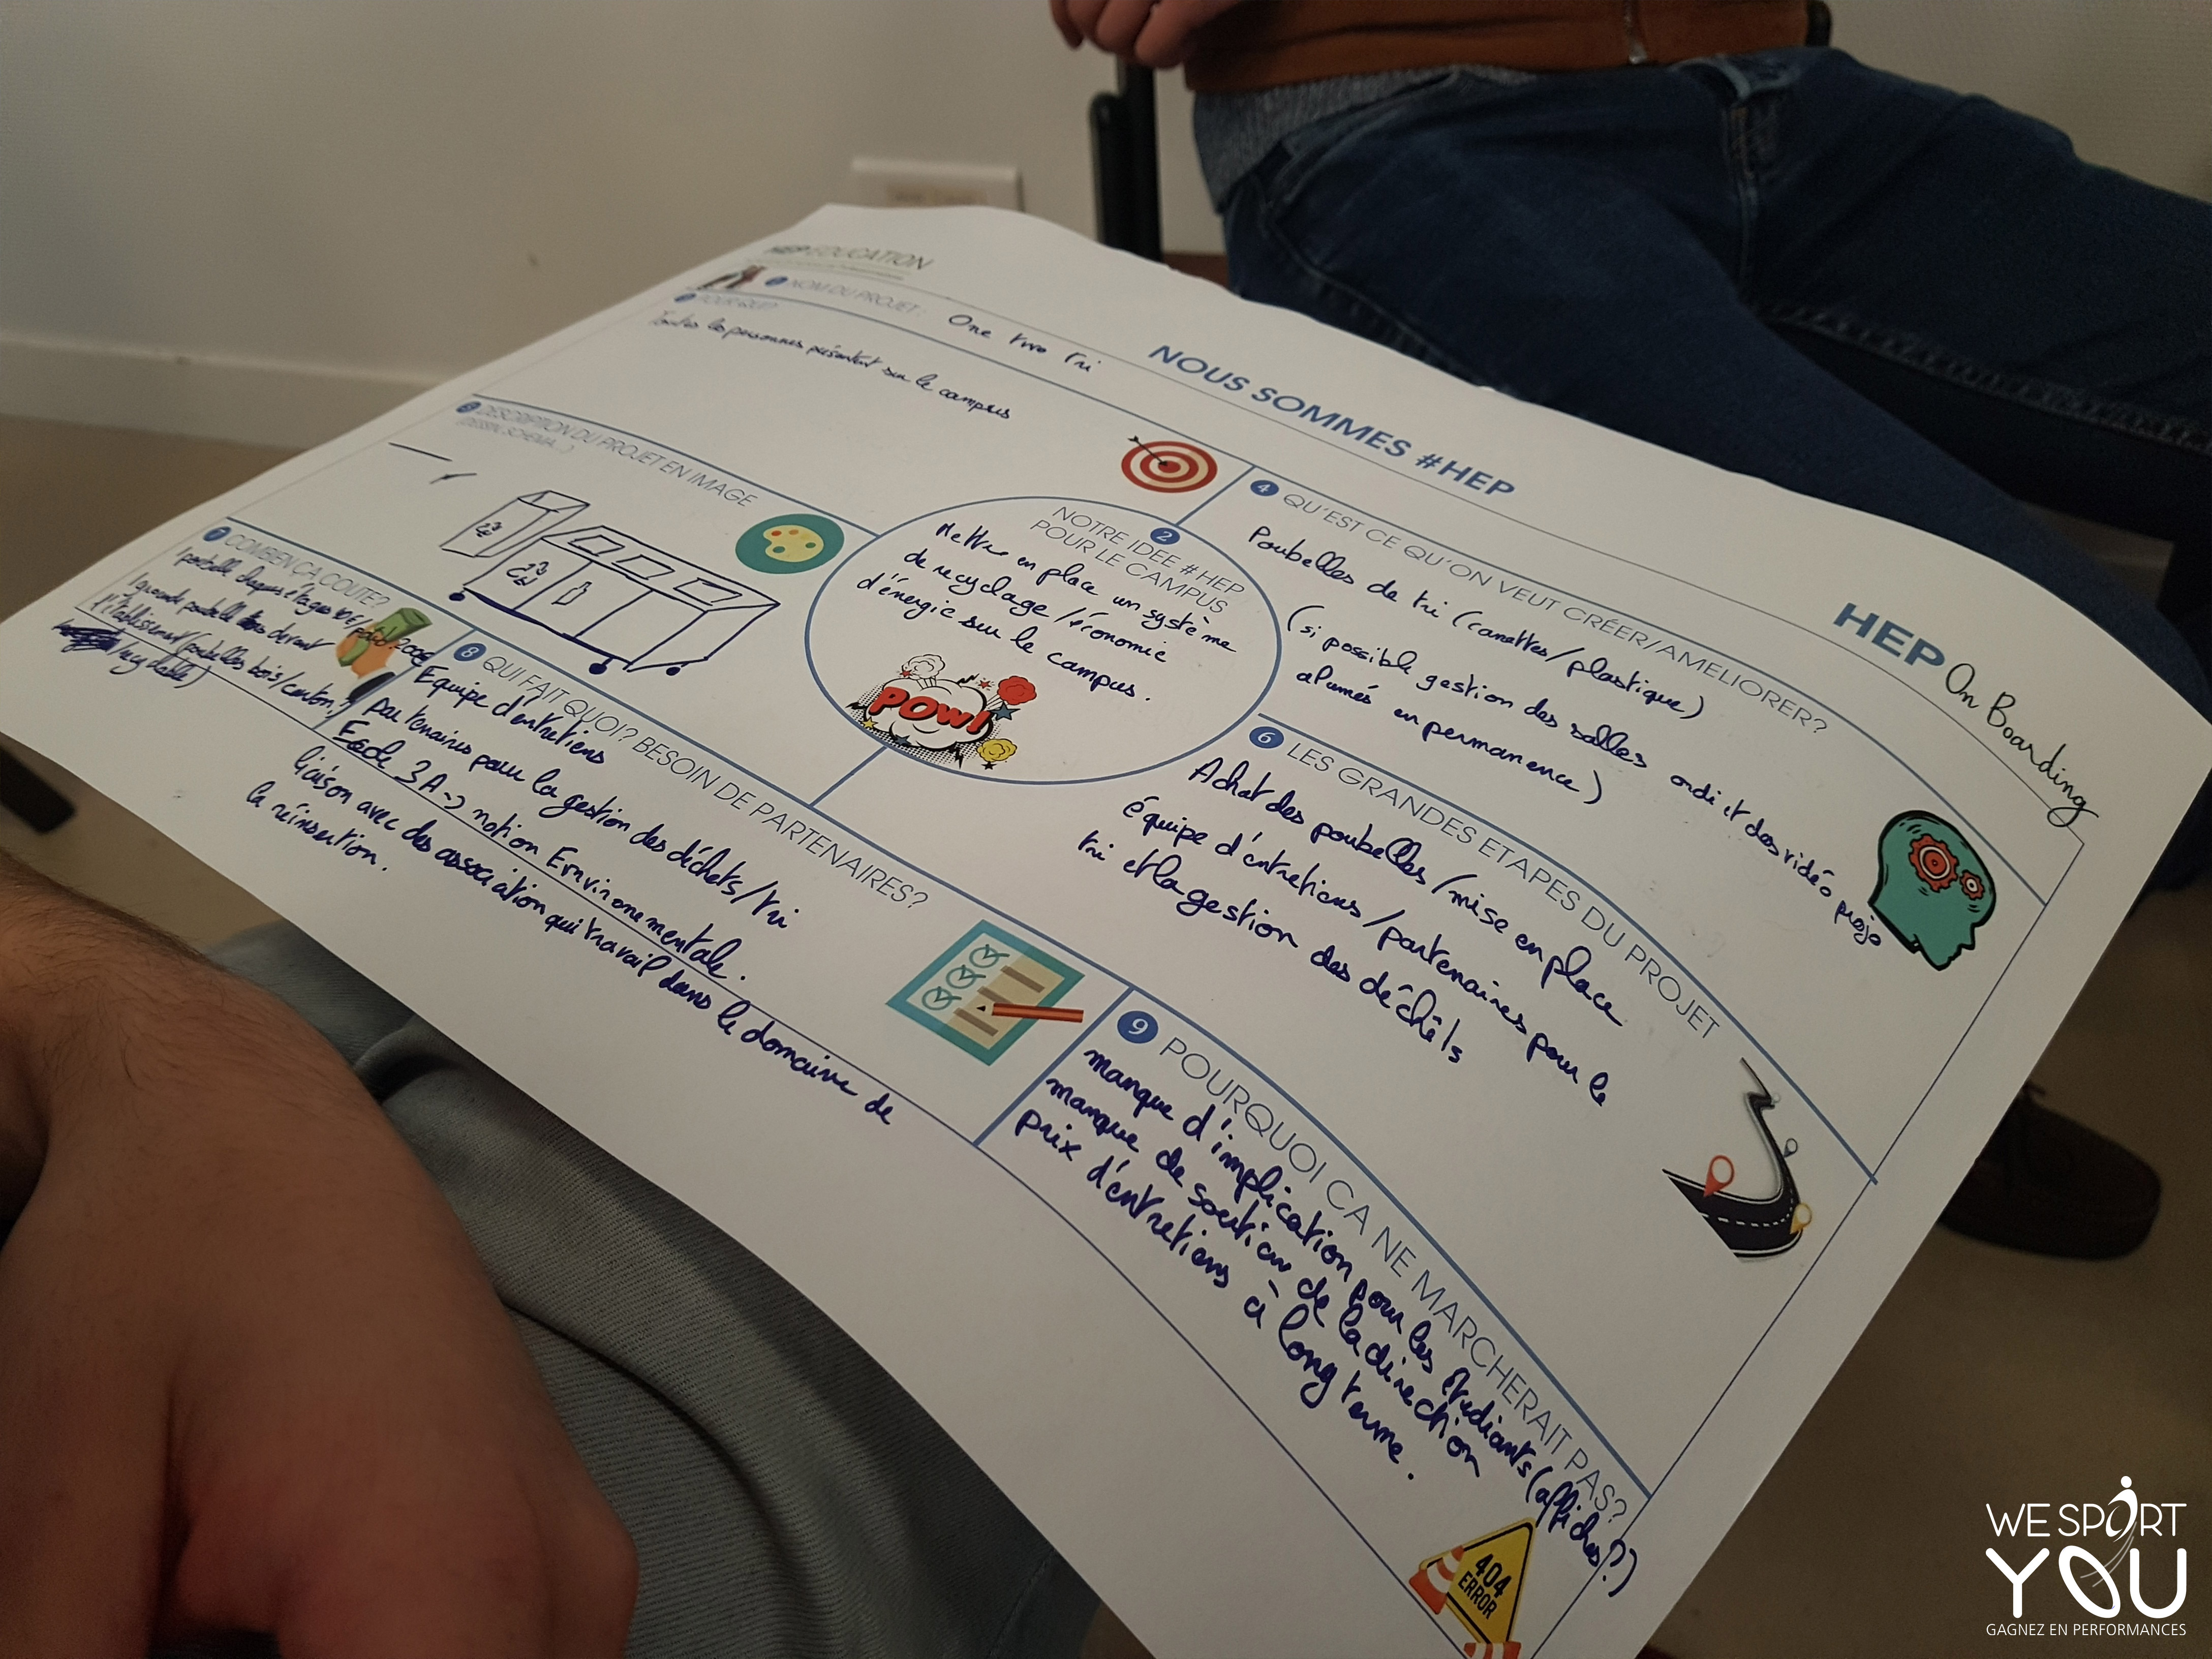 HEP EDUCATION
NOUS SOMMES #HEP
HEP On Boarding
1 NOM DU PROJET : One two tri
3 POUR QUI?
Toutes les personnes présentent sur le campus
2 NOTRE IDEE #HEP
POUR LE CAMPUS
Mettre en place un système
de recyclage / économie
d'énergie sur le campus.
POW!
4 QU'EST CE QU'ON VEUT CRÉER/AMELIORER?
Poubelles de tri (canettes/plastique)
(si possible gestion des salles ordi et des vidéo projo
alumés en permanence)
5 DESCRIPTION DU PROJET EN IMAGE
(DESSIN, SCHEMA...)
6 LES GRANDES ETAPES DU PROJET
Achat des poubelles / mise en place
équipe d'entretiens / partenaires pour le
tri et la gestion des déchêts
7 COMBIEN ÇA COUTE?
1 poubelle chaques étages 200€
1 grande poubelle devant
l'établissement (poubelles bois/carton,
/recyclable)
8 QUI FAIT QUOI? BESOIN DE PARTENAIRES?
Equipe d'entretiens
partenaires pour la gestion des déchets/tri
Ecole 3A -> notion Environementale.
liaison avec des association qui travail dans le domaine de
la réinsertion.
9 POURQUOI CA NE MARCHERAIT PAS?
manque d'implication pour les étudiants (affiches??)
manque de soutien de la direction
prix d'entretiens à long terme.
404
ERROR
WE SPORT
YOU
GAGNEZ EN PERFORMANCES